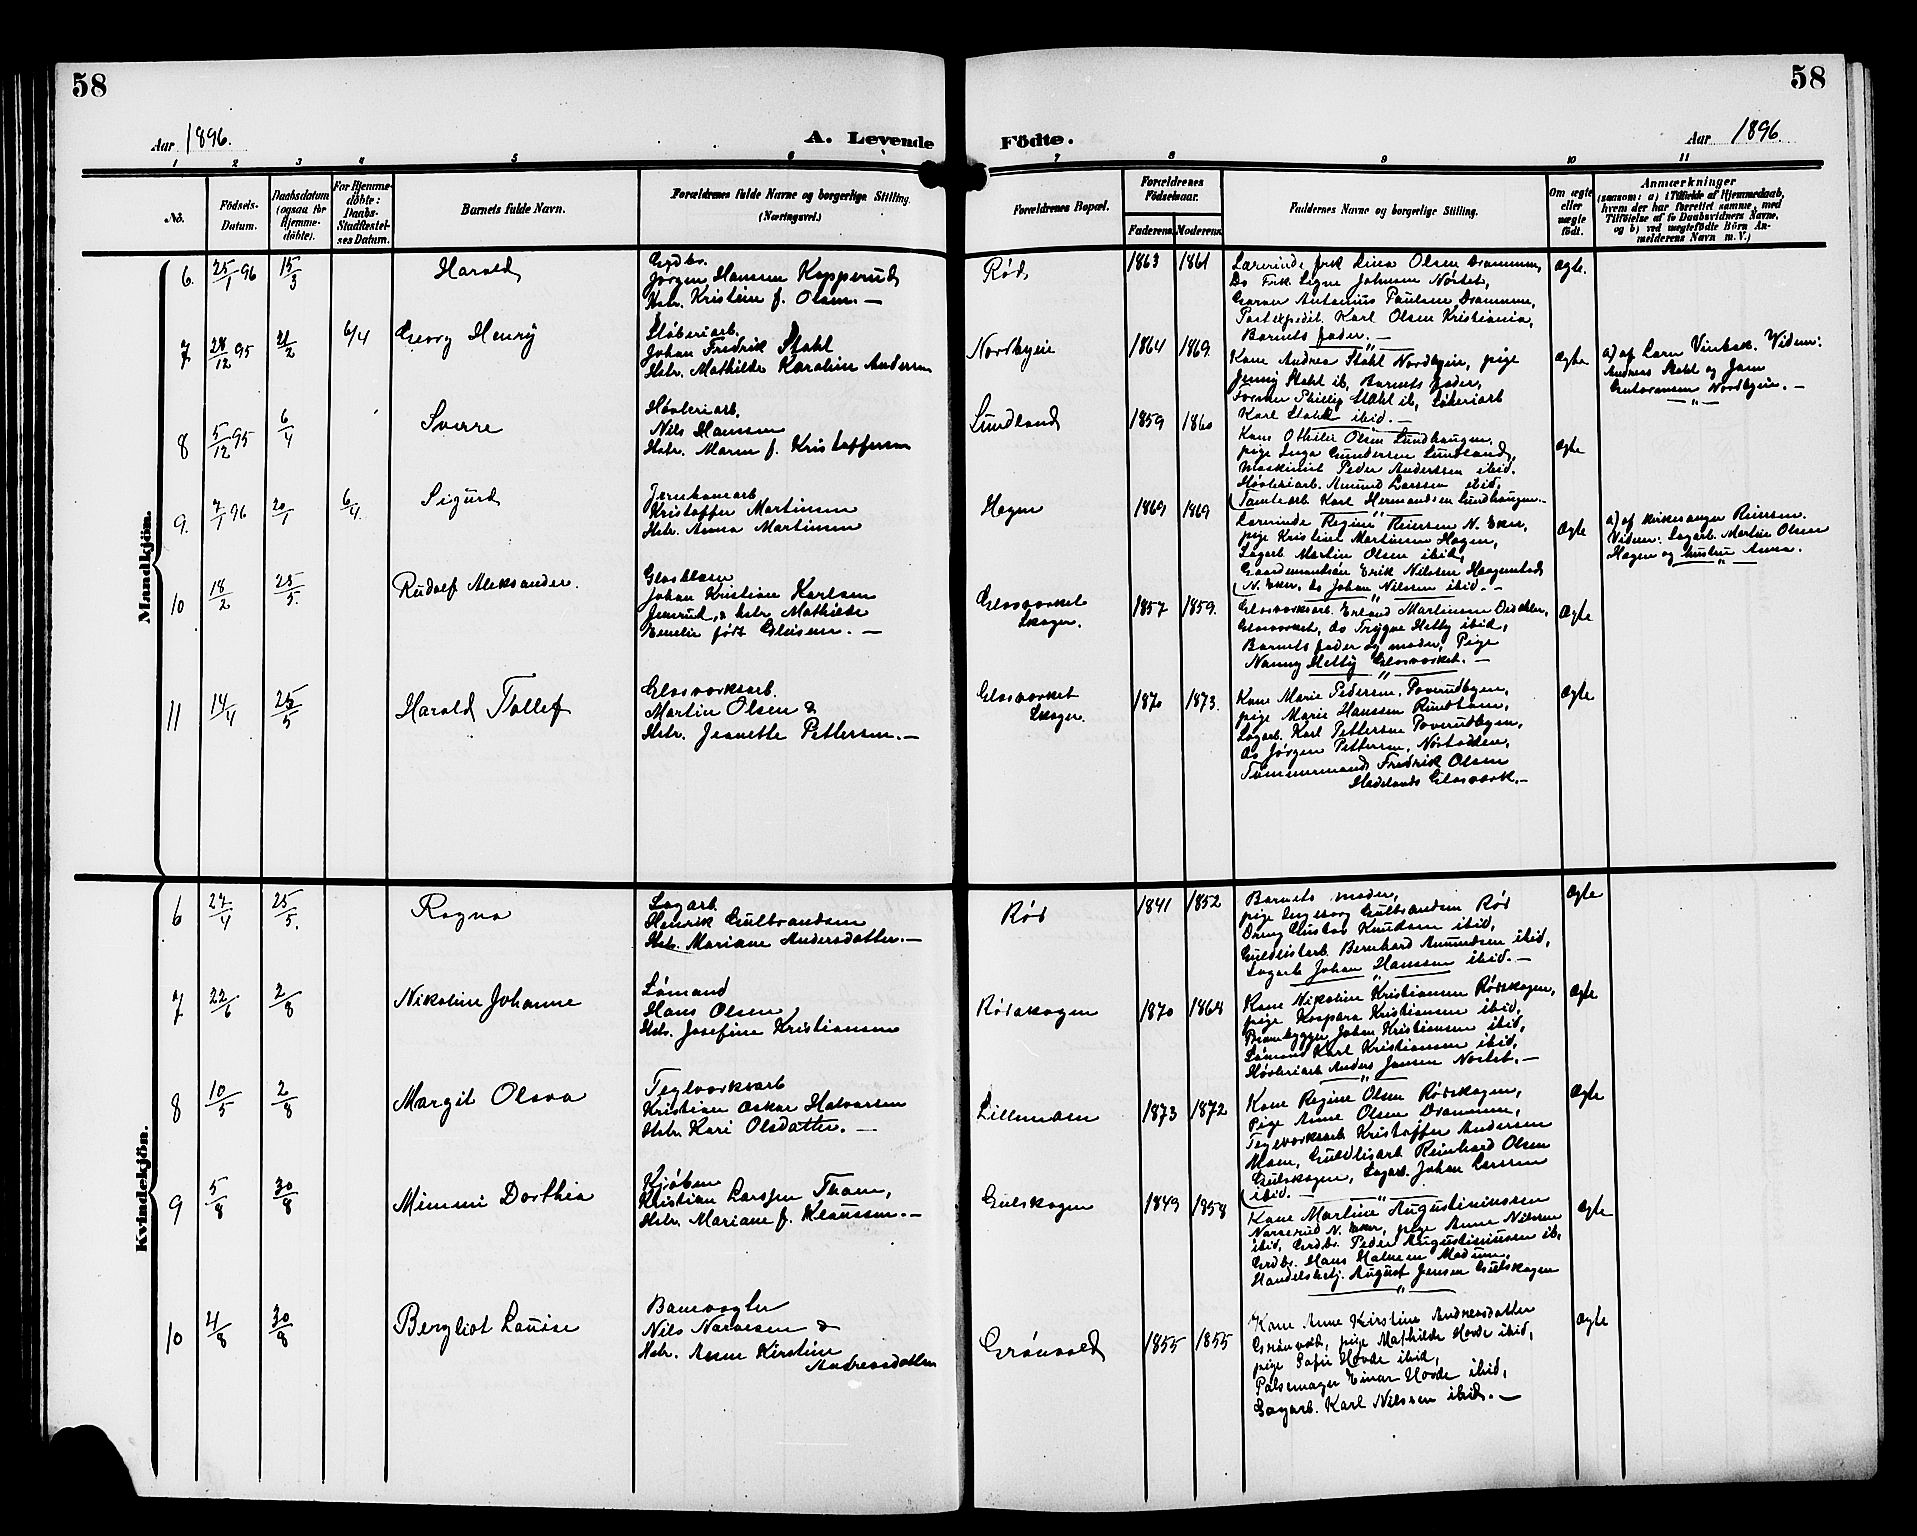 58
58
Aar 1896.
A. Levende
Födte.
Aar 1896.
1 2 3 4 5 6 7 8 9 10 11
No.
Födsels-
Datum.
Daabsdatum
(ogsaa for
Hjemme-
döbte).
For Hjemme-
döbte:
Daabs-
Stadfæstel-
ses Datum.
Barnets fulde Navn.
Forældrenes fulde Navne og borgerlige Stilling.
(Næringsvei.)
Forældrenes Bopæl.
Forældrenes
Födselsaar.
Faderens. Moderens.
Faddernes Navne og borgerlige Stilling.
Om ægte
eller
uægte
födt.
Anmærkninger
(saasom: a) i Tilfælde af Hjemmedaab,
hvem der har forrettet samme, med
Tilföielse af to Daabsvidners Navne,
og b) ved uægtefödte Börn An-
melderens Navn m. V.)
Mandkjön.
6. 25/1 96 15/3
Harald
Grdbr.
Jørgen Hansen Kopperud
Hstr. Kristine f. Olsen. —
Rød
1863 1861
Lærerinde frk Lina Olsen Drammen,
Do Frk. Signe Johnsen Nøstet,
Garver Antonius Paulsen Drammen,
Postexpedit. Karl Olsen Kristiania,
Barnets fader. —
Ægte.
7 28/12 95 21/2 6/4
Georg Henry
Støberiarb.
Johan Fredrik Stahl
Hstr. Mathilde Karoline Andersen
Nordbyeie
1864 1869.
Kone Andrea Stahl Nordbyeie, pige
Jenny Stahl ib, Barnets fader,
Former Phillip Stahl ib, Støberiarb
Karl Stahl ibid. —
Ægte
a) af Lars Vinbak. Vidner:
Andreas Stahl og Jørn
Nordbyeie. —
8 5/12 95 6/4
Sverre
Høvleriarb.
Nils Hansen
Hstr. Maren f. Kristoffersen
Lundland
1859 1860
Kone Othilie Olsen Lundhaugen,
pige Inga Gundersen Lundland,
Maskinist Peder Anderssen ibid.
Høvleriarb. Amund Larssen ibid,
Tomtearb. Karl Hermandsen Lundhaugen. —
Ægte
9. 7/1 96 20/1 6/4
Sigurd
Jernbanearb
Kristoffer Martinsen
Hstr. Anna Martinsen
Hagen
1869 1869
Lærerinde Regine Reiersen N. Eker,
pige Kristine Martinsen Hagen,
Sagarb. Martin Olsen ibid,
Gaardmandsøn Erik Nilsen Haagenstad
N. Eker, do Johan Nilsen ibid. —
Ægte
a) af Kirkesanger Reiersen.
Vidner: Sagarb. Martin Olsen
Hagen og hustru Anna.
10 18/2 25/5.
Rudolf Aleksander.
Glasblæser
Johan Kristian Karlsen
Jemrud, & hstr Mathilde
Emelie født —
Glasværket
Skoger.
1857 1859.
Glasværksarb. Erland Martinsen
Glasværket, do Trygve Hetty ibid,
Barnets fader og moder, Pige
Nanny Hetty Glasværket. —
Ægte
11 14/4 25/5
Harald Tollef
Glasværksarb.
Martin Olsen &
Hstr. Jeanette Pettersen. —
Glasværket
Skoger.
1870 1873.
Kone Marie Pedersen, Poverudbyen,
pige Marie Hanssen Rundtom,
Sagarb. Karl Pettersen Poverudbyen,
do Jørgen Pettersen,
Tømmermand Fredrik Olsen
Hadelands Glasværk. —
Ægte
Kvindekjön.
6 27/4 25/5.
Ragna
Sagarb.
Henrik Gulbrandsen
Hstr. Mariane Andersdatter. —
Rød
1841 1852
Barnets moder,
pige Ingeborg Gulbrandsen Rød
Dreng Gustav Knudsen ibid,
Guldlistarb. Bernhard Amundsen ibid,
Sagarb Johan Hanssen ibid. —
Ægte
7 22/6 2/8
Nikoline Johanne
Sømand
Hans Olsen
Hstr. Josefine Kristiansen
Rødskogen
1870 1868
Kone Nikoline Kristiansen Rødskogen,
pige Kaspara Kristiansen ibid,
Johan Kristiansen ibid,
Sømand Karl Kristiansen ibid,
Høvleriarb Anders Jensen Nøstet. —
Ægte
8 10/5 2/8
Margit Olava
Teglværksarb
Kristian Oskar Halvorsen
Hstr. Kari Olsdatter. —
Lillemosen
1873 1872
Kone Regine Olsen Rødskogen,
Pige Anne Olsen Drammen,
Teglværksarb Kristoffer Andersen
Moen, Guldlisarb Reinhard Olsen
Gulskogen, Sagarb. Johan Larssen
ibid. —
Ægte
9 5/8 30/8
Mimmi Dorthea
Kjøbm
Kristian Larssen Thom,
Hstr. Mariane f. Klaussen. —
Gulskogen
1849 1858
Kone Martine Augustinussen
N. Eker, pige Anne Nilssen
ibid, Grdbr. Peder Augustinussen ib,
Grdbr. Hans Modum,
Handelsbetj. August Jensen Gulskogen
Ægte
10 4/8 30/8
Bergliot Louise
Banevogter
Nils Narvesen &
Hstr. Anne Kirstine
Andreasdatter
Grønvold
1855 1855
Kone Anne Kirstine Andreasdatter
Grønvold, pige Mathilde Hovde ibid,
pige Sofie Hovde ibid,
Pølsemager Einar Hovde ibid,
Sagarb. Karl Nilssen ibid. —
Ægte